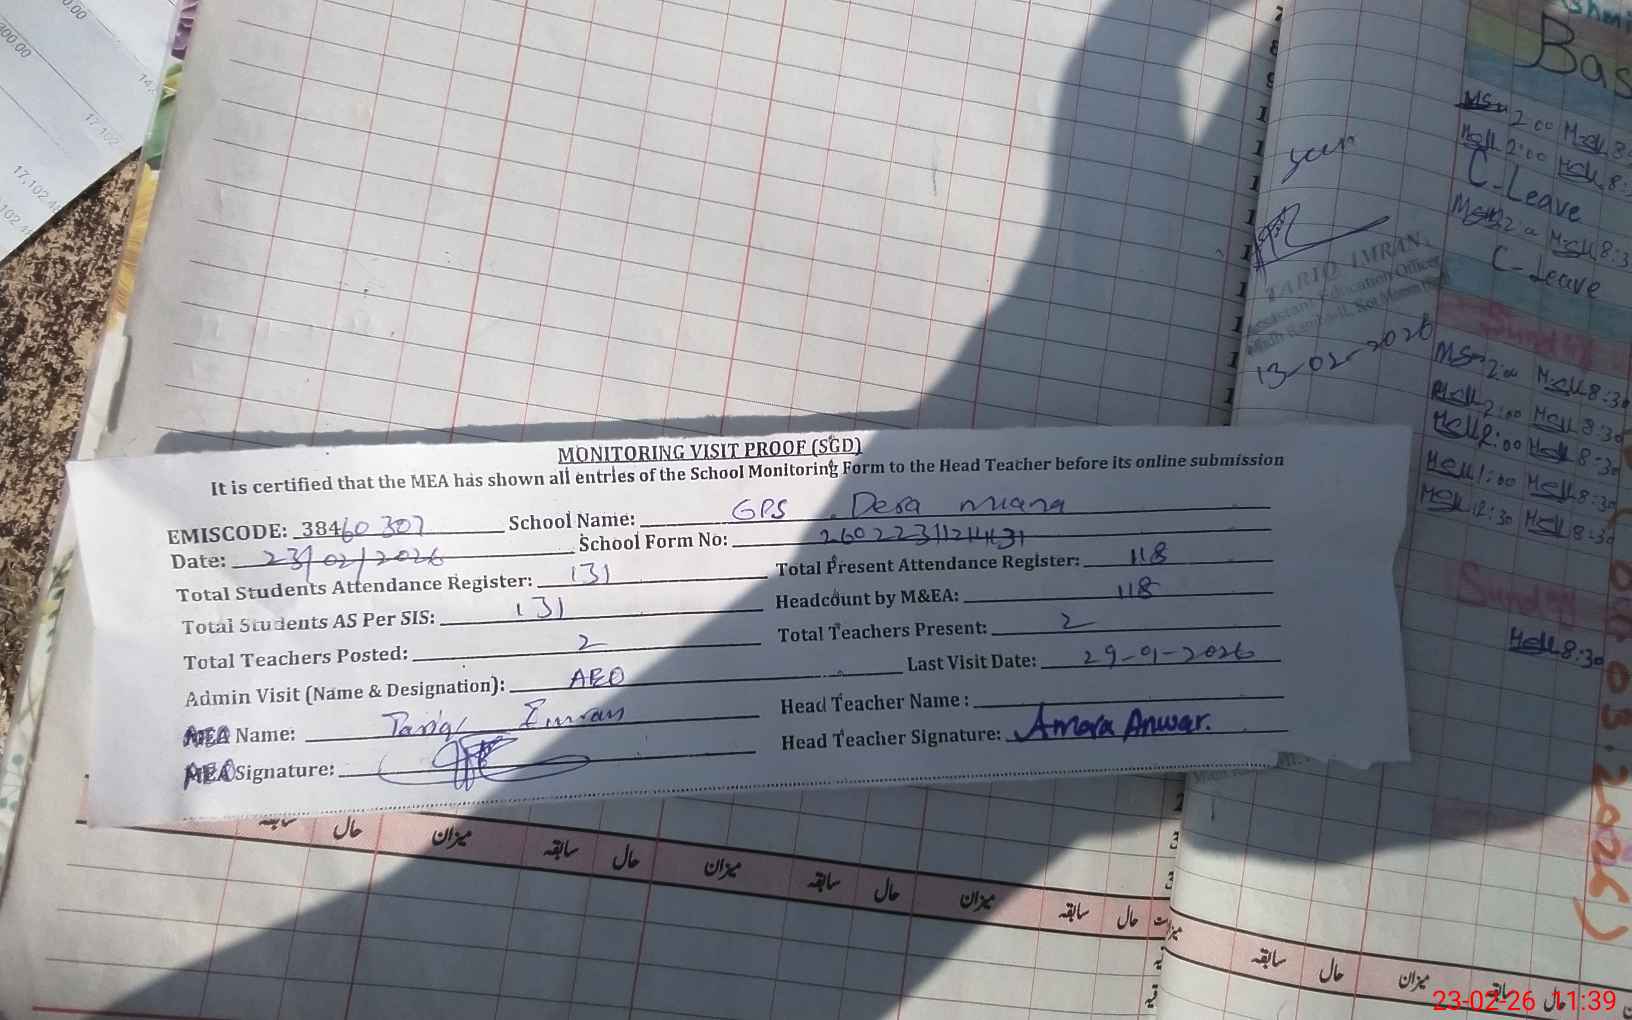 MONITORING VISIT PROOF (SGD)
It is certified that the MEA has shown all entries of the School Monitoring Form to the Head Teacher before its online submission
EMISCODE: 38460307 School Name: GPS Dera miana
Date: 23/02/2026 School Form No:
Total Students Attendance Register: 131 Total Present Attendance Register: 118
Total Students AS Per SIS: 131 Headcount by M&EA: 118
Total Teachers Posted: 2 Total Teachers Present: 2
Admin Visit (Name & Designation): AEO Last Visit Date: 29-01-2026
AEO Name: Tariq Imran Head Teacher Name:
AEO Signature: Head Teacher Signature: Amara Anwar.
سابقہ حال میزان سابقہ حال میزان سابقہ حال میزان سابقہ حال
سابقہ حال میزان سابقہ حال
seen
TARIQ IMRAN
Assistant Education Officer
13-02-2026
Bas
2:00
2:00
C-Leave
8:3
C-Leave
Sunday
2:00 8:30
2:00 8:30
2:00 8:30
1:00 8:30
12:30 8:30
Sunday
8:30
03.2026)
17,102
17,102
23-02-26 11:39